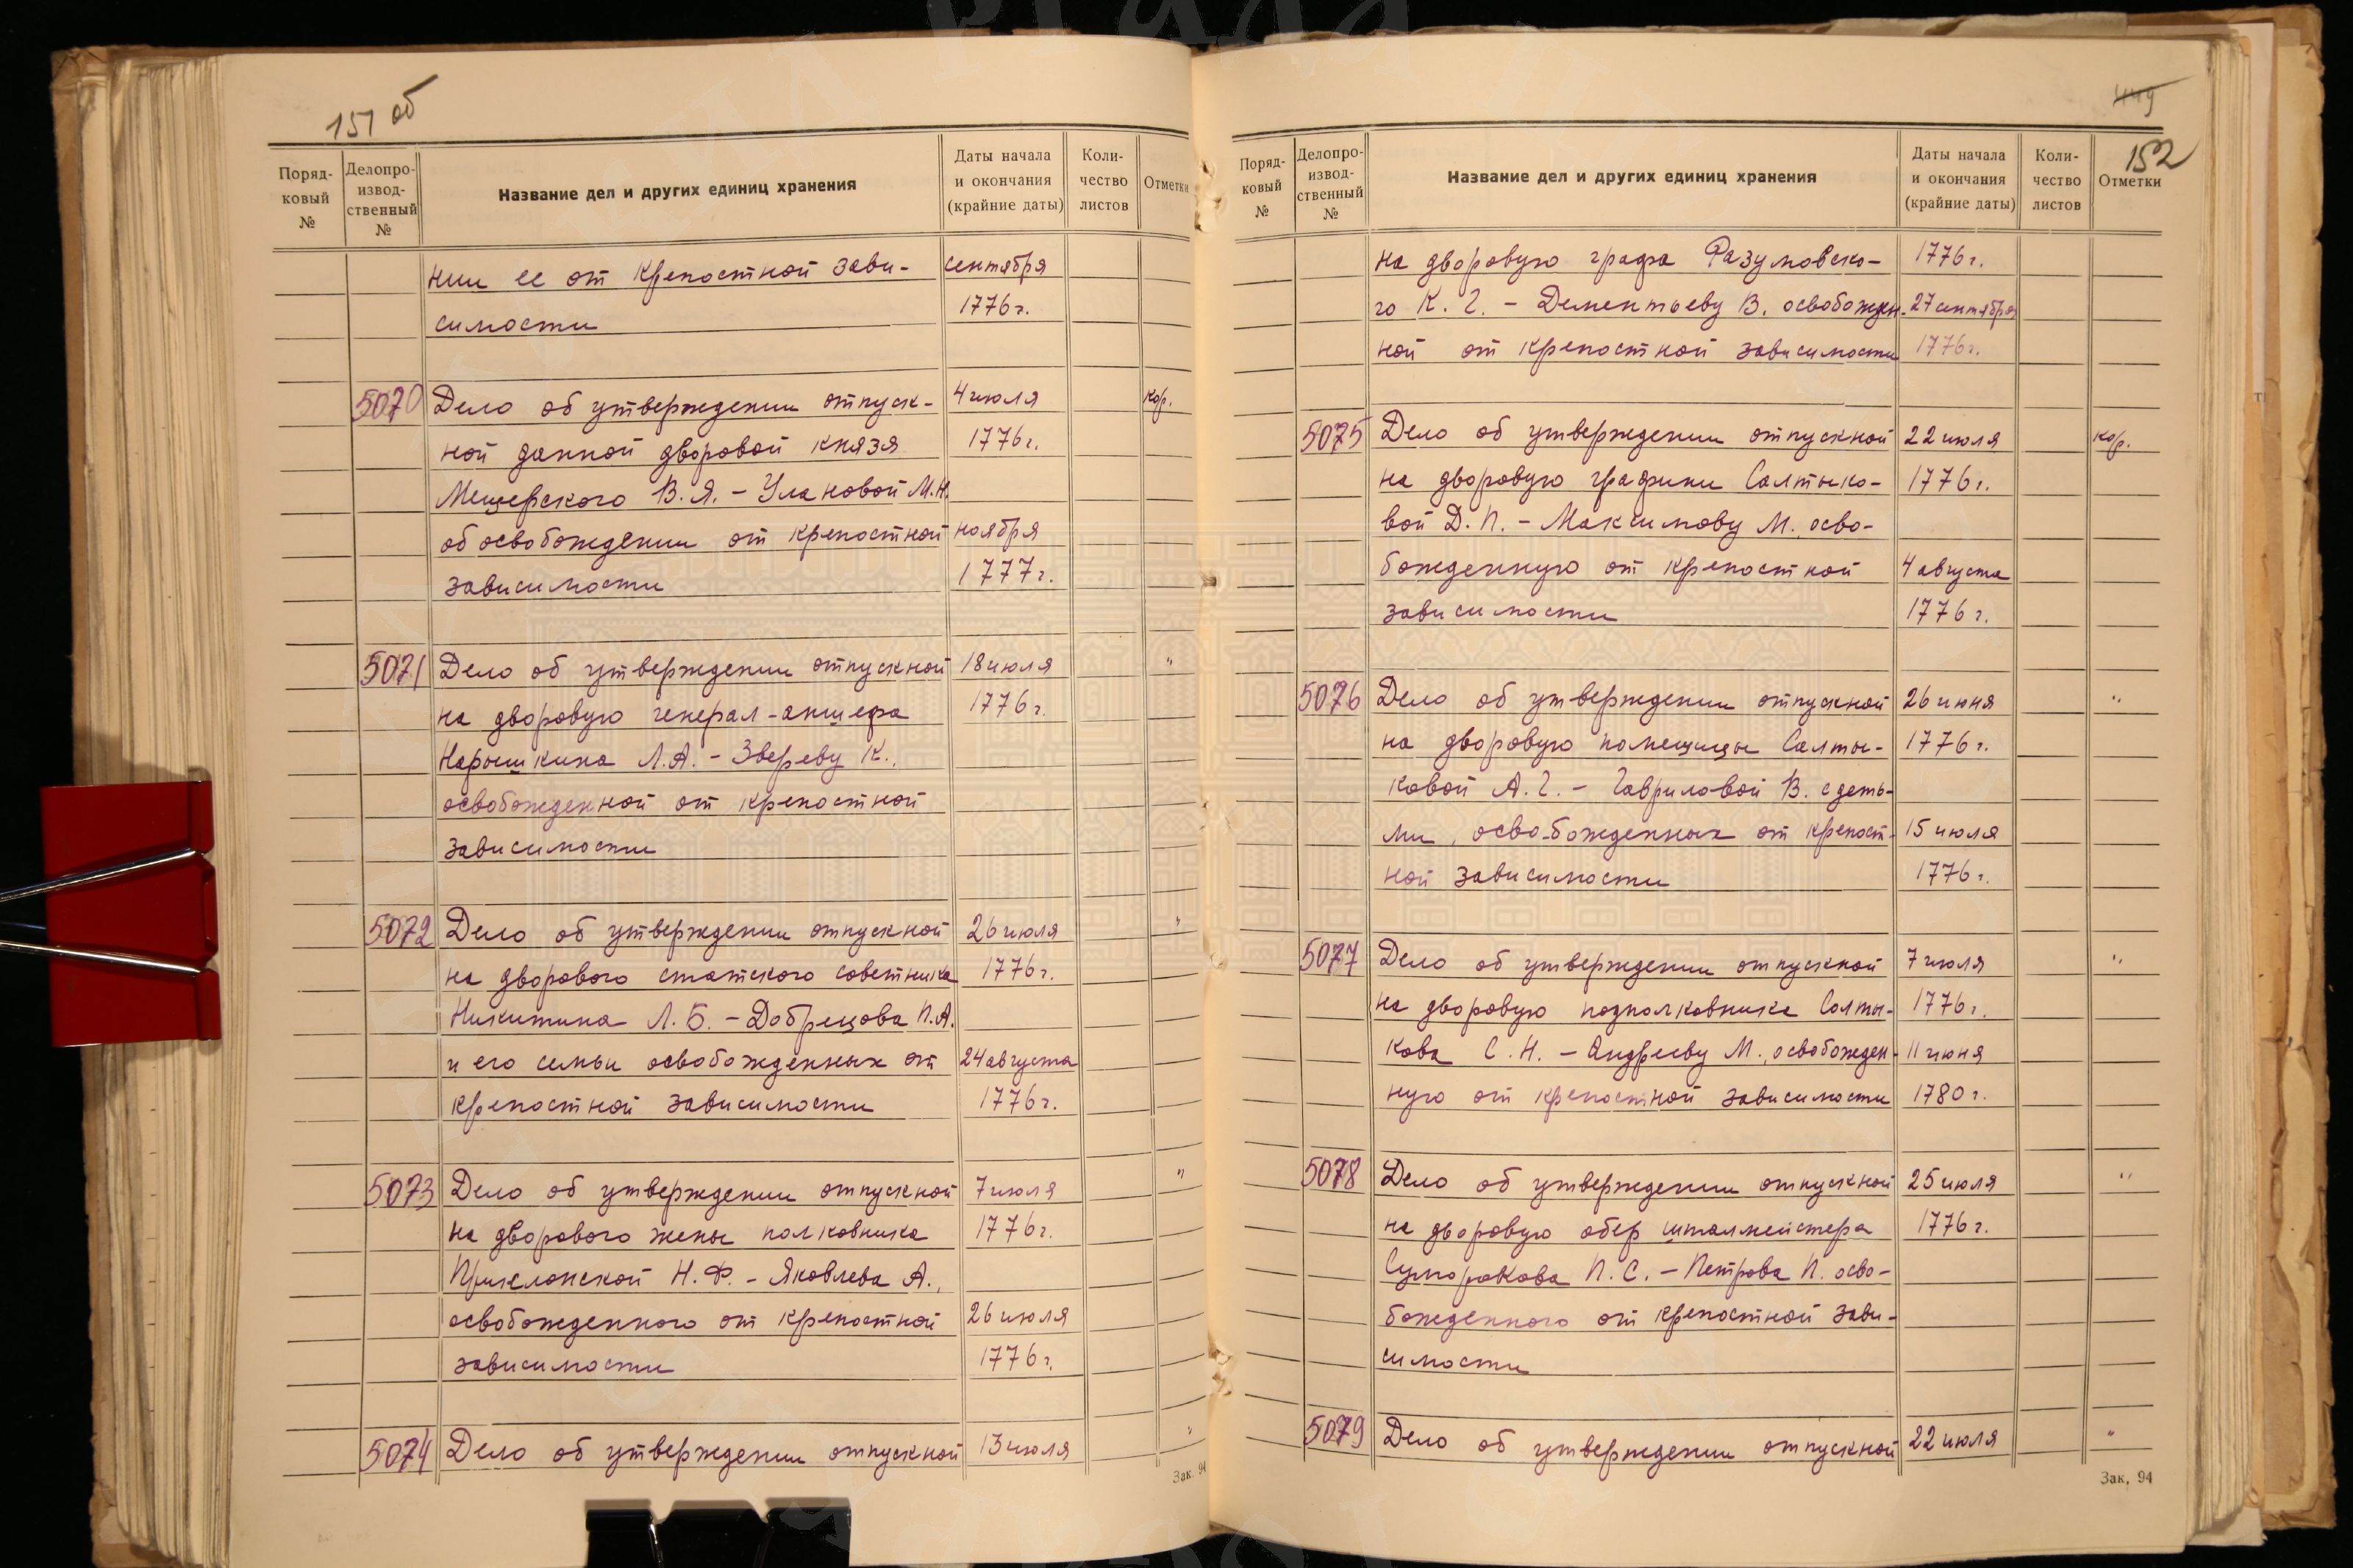 151 об
Поряд-
ковый
№
Делопро-
извод-
ственный
№
Название дел и других единиц хранения
Даты начала
и окончания
(крайние даты)
Коли-
чество
листов
Отметки
нии ее от крепостной зави- сентября
симости 1776 г.
5070 Дело об утверждении отпуск- 4 июля кор.
ной данной дворовой князя 1776 г.
Мещерского В.Я. - Улановой М.Н.
об освобождении от крепостной ноября
зависимости 1777 г.
5071 Дело об утверждении отпускной 18 июля "
на дворовую генерал-аншефа 1776 г.
Нарышкина Л.А. - Звереву К.,
освобожденной от крепостной
зависимости
5072 Дело об утверждении отпускной 26 июля "
на дворового статского советника 1776 г.
Никитина Л.Б. - Добрецова П.А.
и его семьи освобожденных от 24 августа
крепостной зависимости 1776 г.
5073 Дело об утверждении отпускной 7 июля "
на дворового жены полковника 1776 г.
Приклонской Н.Ф. - Яковлева А.,
освобожденного от крепостной 26 июля
зависимости 1776 г.
5074 Дело об утверждении отпускной 13 июля "
Зак. 94
449
152
Поряд-
ковый
№
Делопро-
извод-
ственный
№
Название дел и других единиц хранения
Даты начала
и окончания
(крайние даты)
Коли-
чество
листов
Отметки
на дворовую графа Разумовско- 1776 г.
го К.Г. - Дементьеву В. освобожден- 27 сентября
ной от крепостной зависимости 1776 г.
5075 Дело об утверждении отпускной 22 июля кор.
на дворовую графини Салтыко- 1776 г.
вой Д.П. - Максимову М., осво-
божденную от крепостной 4 августа
зависимости 1776 г.
5076 Дело об утверждении отпускной 26 июня "
на дворовую помещицы Салты- 1776 г.
ковой А.Г. - Гавриловой В. с деть-
ми, освобожденных от крепост- 15 июля
ной зависимости 1776 г.
5077 Дело об утверждении отпускной 7 июля "
на дворовую подполковника Салты- 1776 г.
кова С.Н. - Андрееву М., освобожден- 11 июня
ную от крепостной зависимости 1780 г.
5078 Дело об утверждении отпускной 25 июля "
на дворовую обер шталмейстера 1776 г.
Сумарокова П.С. - Петрова П. осво-
божденного от крепостной зави-
симости
5079 Дело об утверждении отпускной 22 июля "
Зак. 94